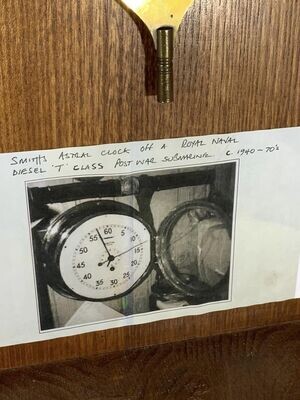 SMITHS ASTRAL CLOCK OFF A ROYAL NAVAL
DIESEL 'T' CLASS POST WAR SUBMARINE. C. 1940-70's
60
55
5
50
10
45
15
40
20
35
25
30